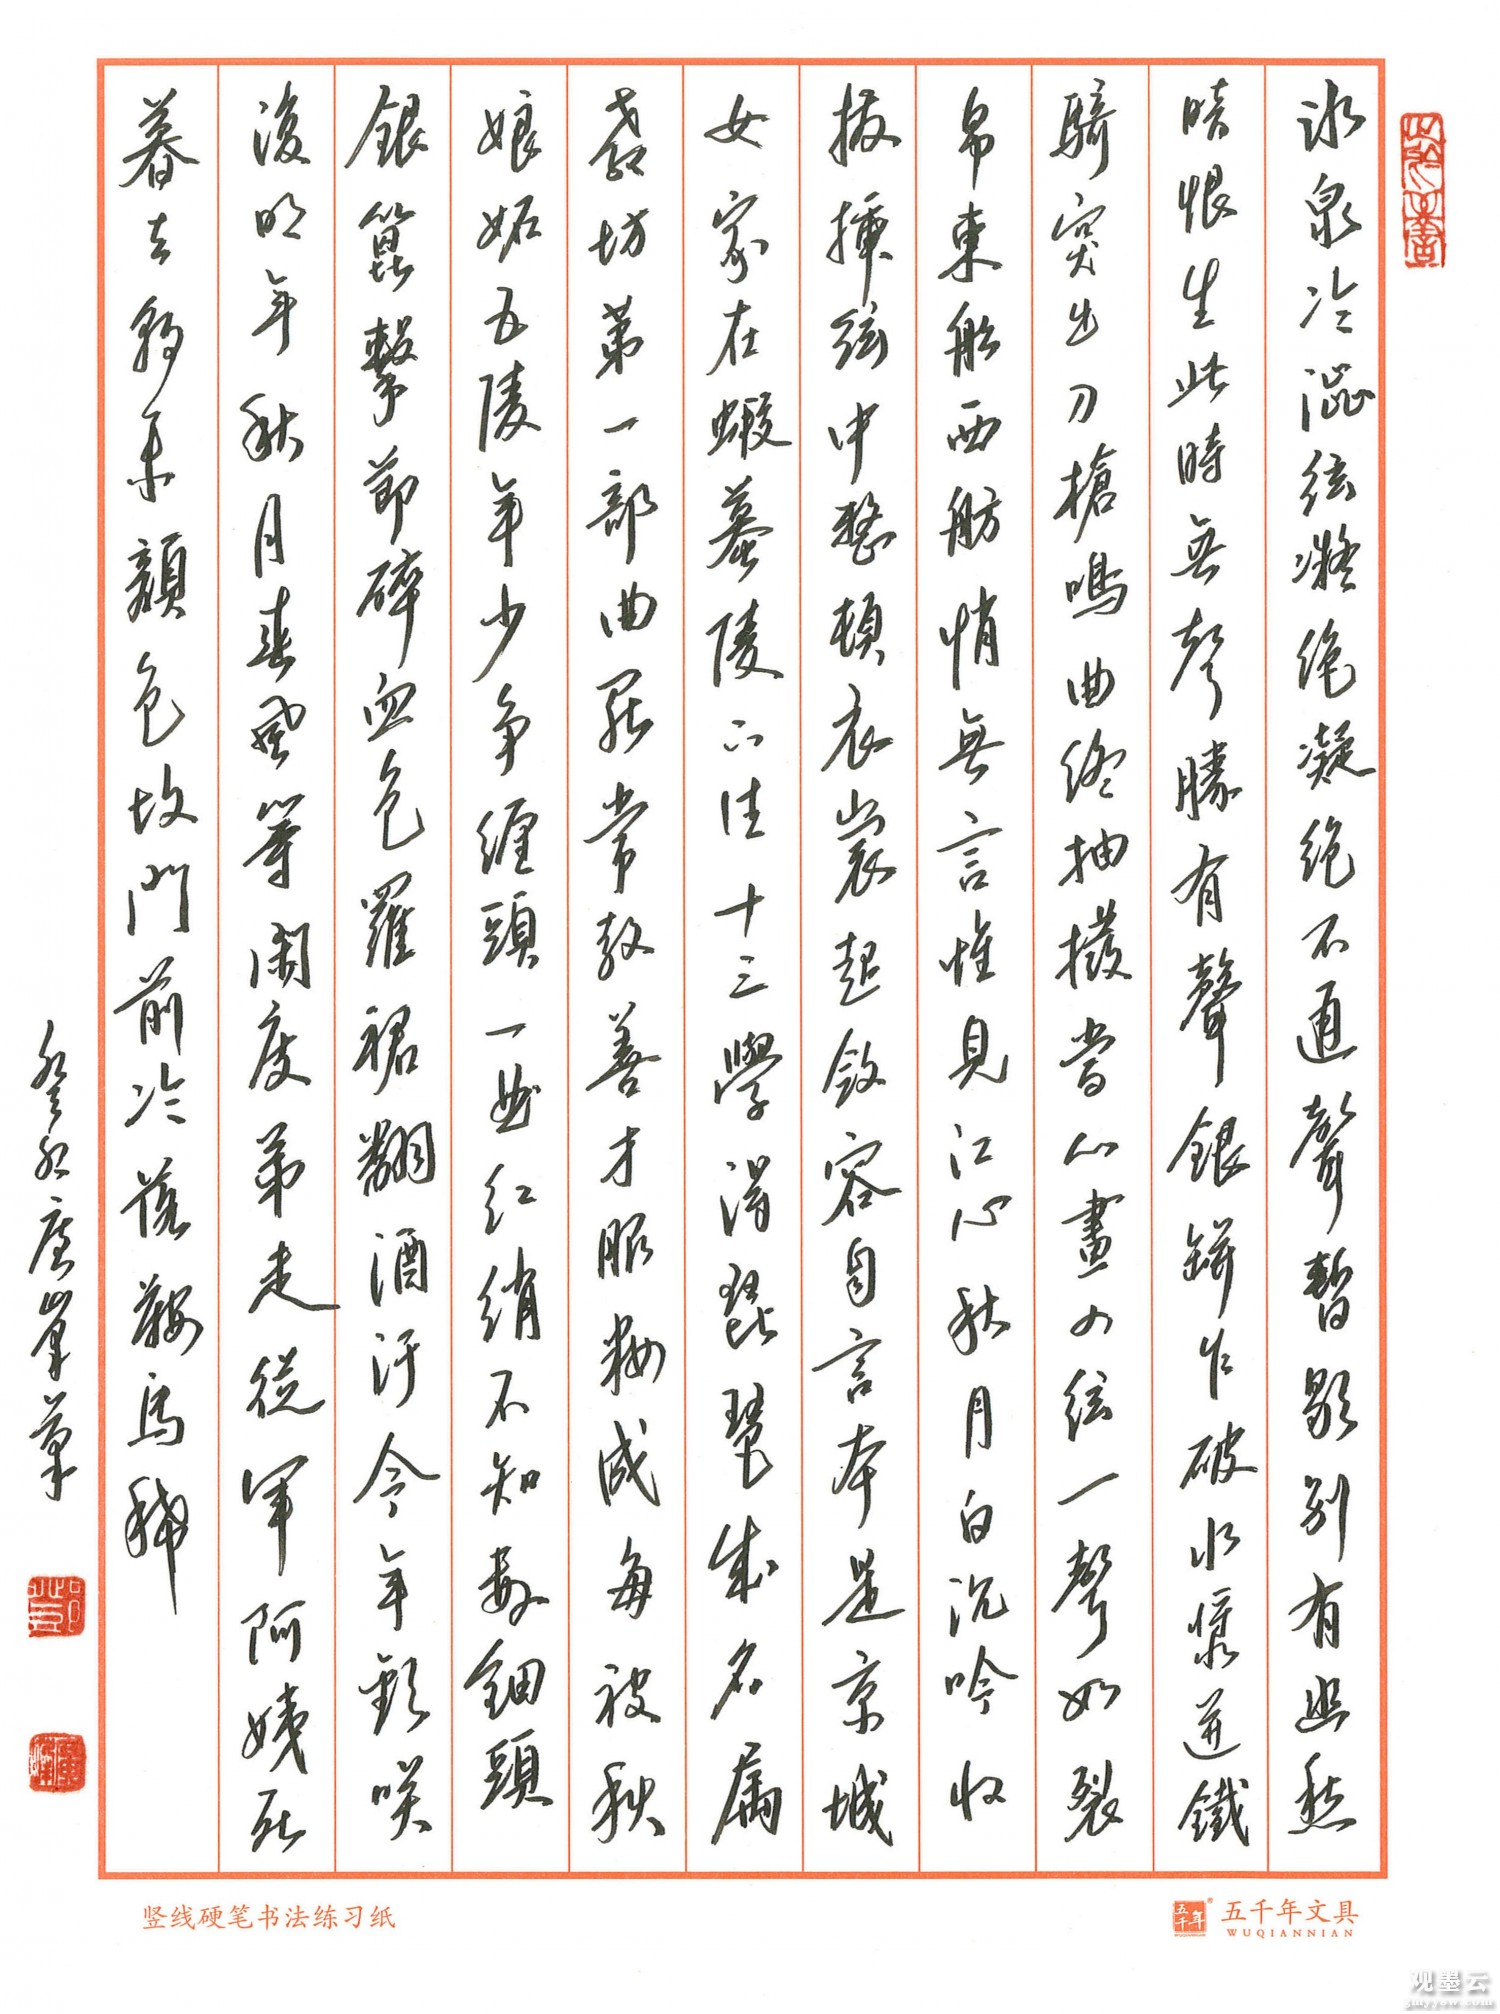 冰泉冷澀絃凝絶凝絶不通聲暫歇别有幽愁
暗恨生此時無聲勝有聲銀缾乍破水漿迸鐵
騎突出刀槍鳴曲終抽撥當心畫四絃一聲如裂
帛東船西舫悄無言惟見江心秋月白沉吟收
撥插絃中整頓衣裳起斂容自言本是京城
女家在蝦蟇陵下住十三學得琵琶成名屬
教坊第一部曲罷常教善才服粧成每被秋
娘妬五陵年少争纏頭一曲红綃不知數鈿頭
銀篦擊節碎血色羅裙翻酒汙今年歡咲
復明年秋月春風等閑度弟走從軍阿姨死
暮去朝來顏色故門前冷落鞍馬稀
癸卯峯草
竖线硬笔书法练习纸
五千年
五千年文具
WUQIANNIAN
观墨云